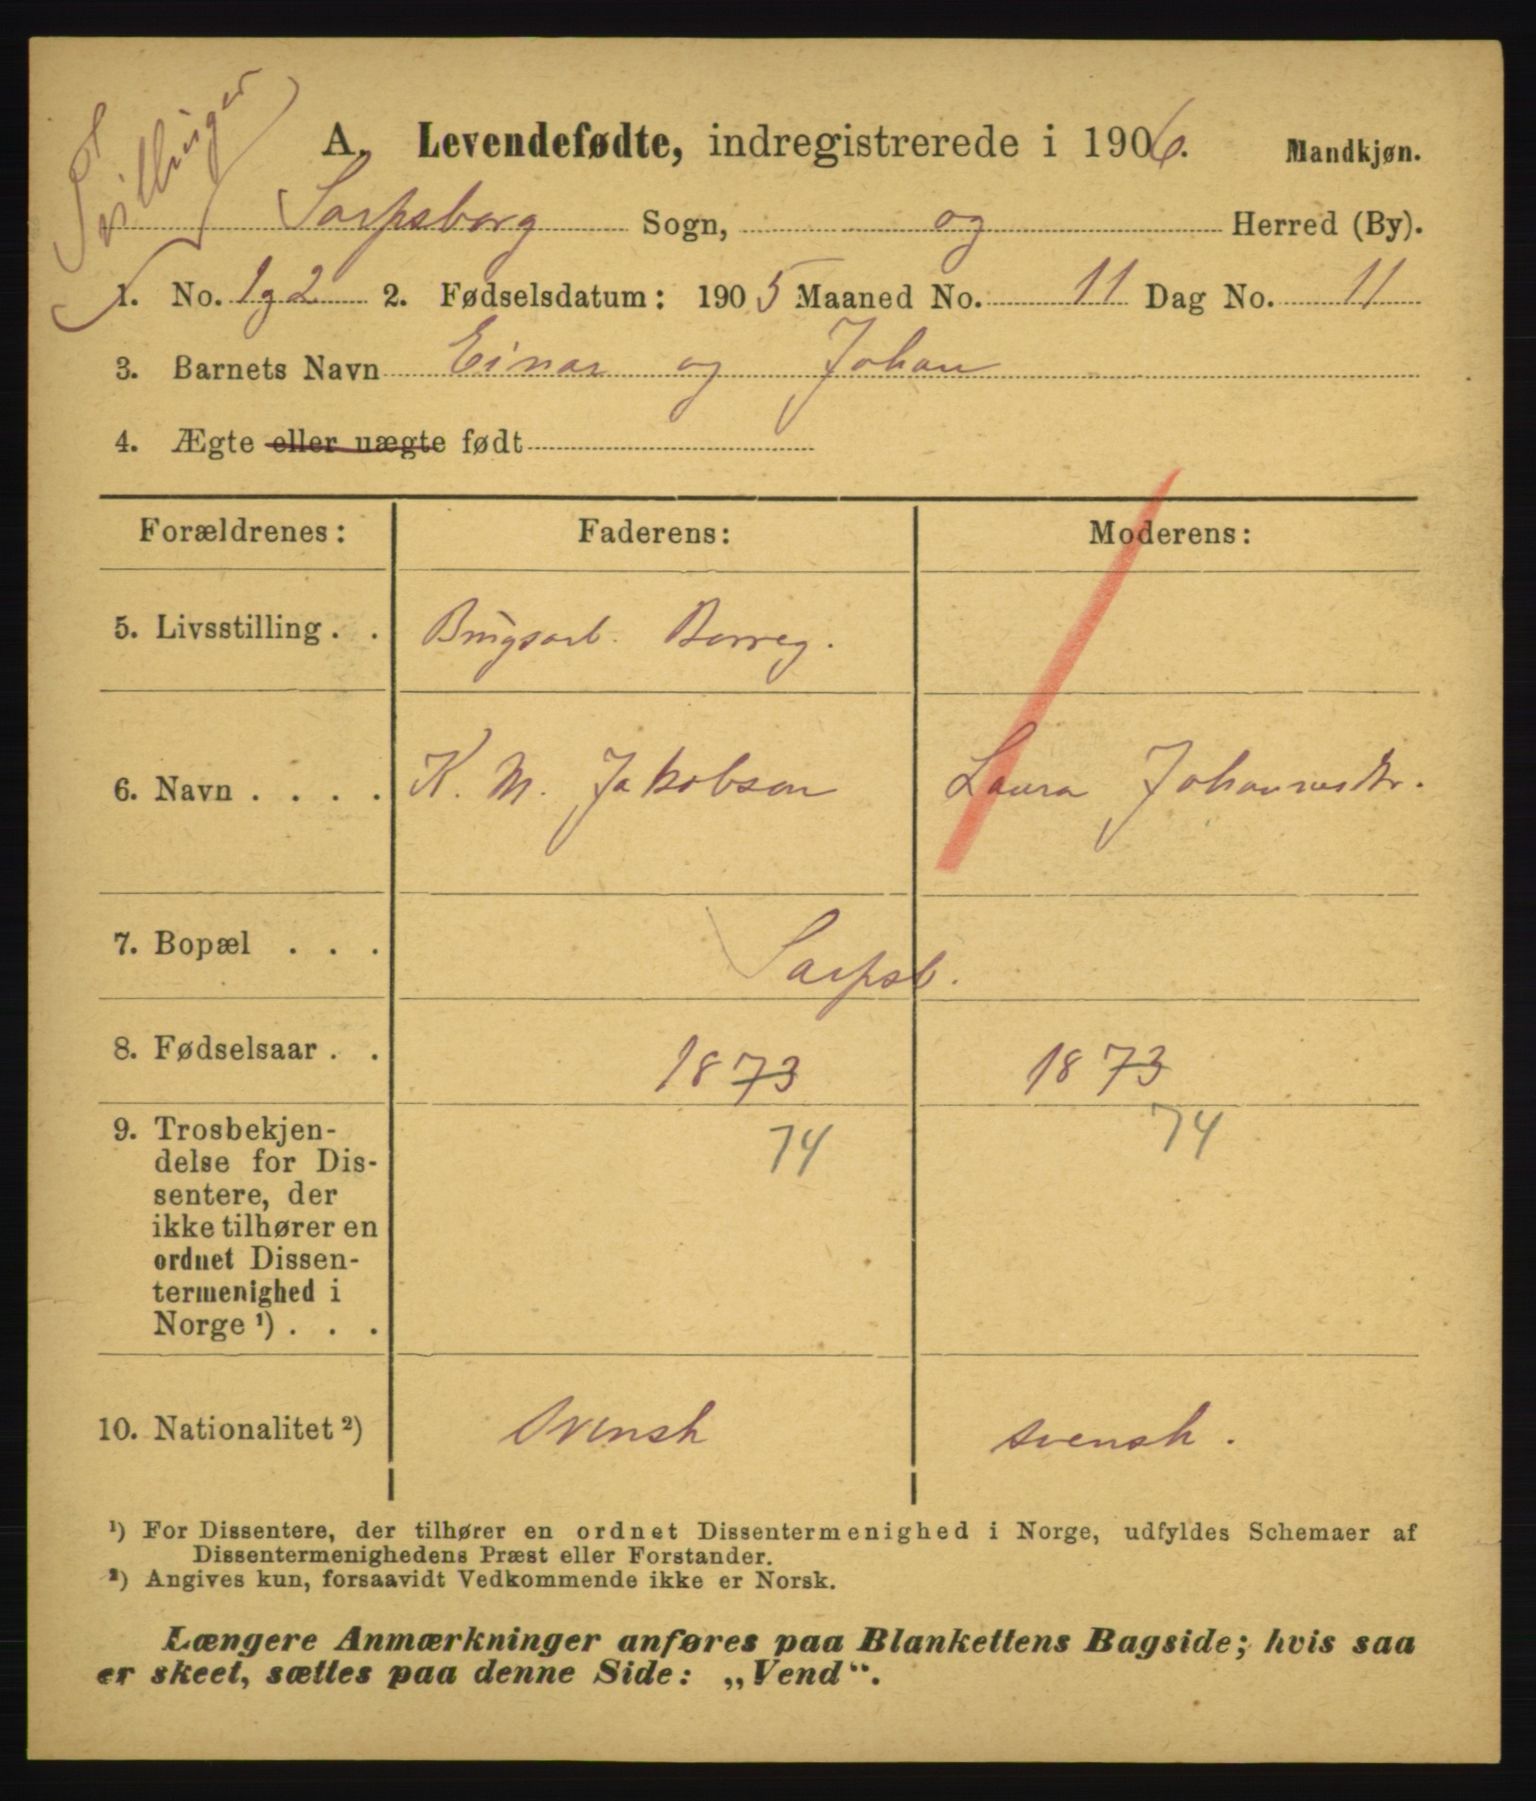 Tvillinger
A. Levendefødte, indregistrerede i 1906. Mandkjøn.
Sarpsborg Sogn, og Herred (By).
1. No. 1 og 2 2. Fødselsdatum: 1905 Maaned No. 11 Dag No. 11
3. Barnets Navn Einar og Johan
4. Ægte eller uægte født
Forældrenes: Faderens: Moderens:
5. Livsstilling . . Brugsarb. Borreg.
6. Navn . . . . K. M. Jakobsen Laura Johannesdtr.
7. Bopæl . . . Sarpsb.
8. Fødselsaar . . 1873 1873
74 74
9. Trosbekjen-
delse for Dis-
sentere, der
ikke tilhører en
ordnet Dissen-
termenighed i
Norge ¹) . . .
10. Nationalitet ²) Svensk svensk.
¹) For Dissentere, der tilhører en ordnet Dissentermenighed i Norge, udfyldes Schemaer af
Dissentermenighedens Præst eller Forstander.
²) Angives kun, forsaavidt Vedkommende ikke er Norsk.
Længere Anmærkninger anføres paa Blankettens Bagside; hvis saa
er skeet, sættes paa denne Side: „Vend“.